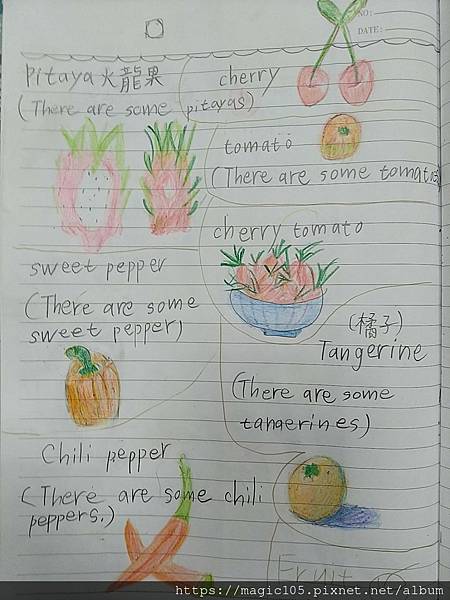 NO:
DATE:
Pitaya火龍果
(There are some pitayas)
cherry
tomato
(There are some tomatoes)
cherry tomato
sweet pepper
(There are some
sweet pepper)
(橘子)
Tangerine
(There are some
tangerines)
Chili pepper
(There are some chili
peppers.)
Fruit
https://magic105.pixnet.net/album